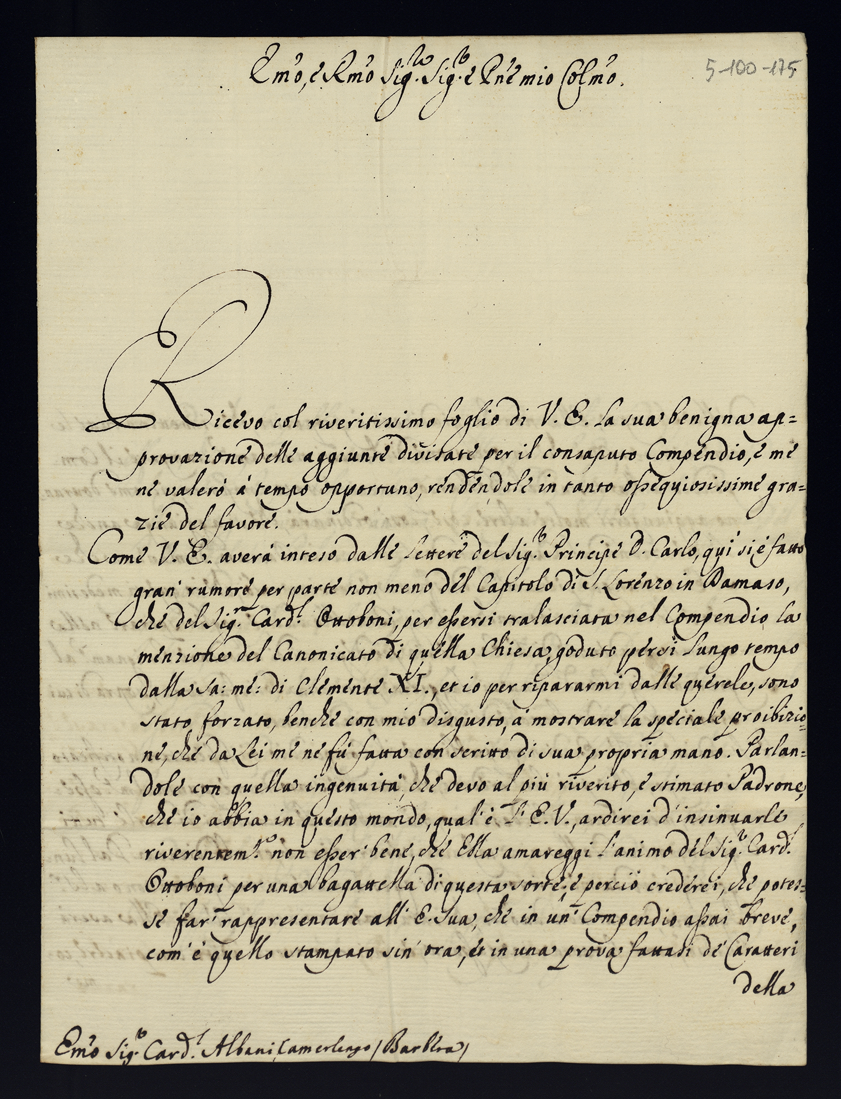 Em̃o, e Rm̃o Sig.re Sig.r e Pñe mio Colm̃o.
5-100-175
Ricevo col riveritissimo foglio di V. E. la sua benigna ap=
provazione delle aggiunte divisate per il consaputo Compendio, e me
ne valerò á tempo opportuno, rendendole in tanto ossequiosissime gra=
zie del favore.
Come V. E. averà inteso dalle lettere del Sig.r Principe D. Carlo, qui si é fatto
gran' rumore per parte non meno del Capitolo di S. Lorenzo in Damaso,
che del Sig.r Card.l Ottoboni, per essersi tralasciata nel Compendio la
menzione del Canonicato di quella Chiesa, goduto persi lungo tempo
dalla sa: me: di Clemente XI., et io per ripararmi dalle querele, sono
stato forzato, benche con mio disgusto, á mostrare la speciale proibizio=
ne, che da Lei me ne fú fatta con scritto di sua propria mano. Parlan=
dole con quella ingenuita', che devo al più riverito, e stimato Padrone,
che io abbia in questo mondo, qual'é l'E. V., ardirei d'insinuarle
riverentem.te non esser' bene, che Ella amareggi l'animo del Sig.r Card.l
Ottoboni per una bagattella di questa sorte; e perciò crederei, che potes=
se far' rappresentare all' E. Sua, che in un' Compendio assai breve,
com' é quello stampato sin' ora, et in una prova fattasi de' Caratteri
della
Em̃o Sig.r Card.l Albani Camerlengo /Barbera/